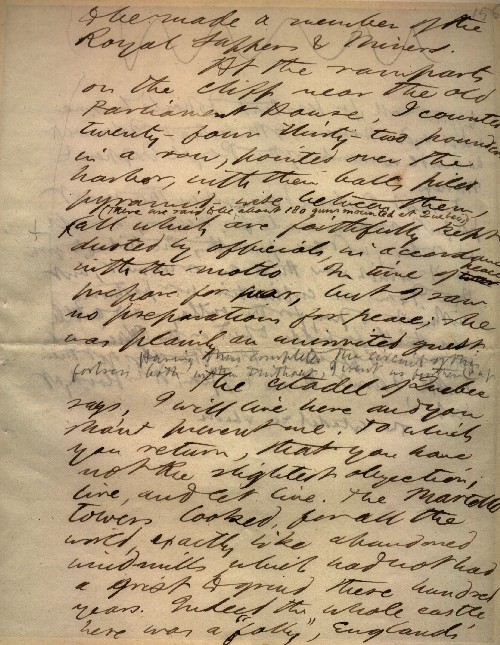 & be made a member of the
Royal Sappers & Miners.
At the ramparts
on the cliff near the old
Parliament House, I counted
twenty-four thirty-two pounders
in a row, pointed over the
harbor, with their balls piled
pyramid-wise between them,
(There are said to be about 180 guns mounted at Quebec)
all which are faithfully kept
dusted by officials, in accordance
with the motto, In time of peace
prepare for war, but I saw
no preparations for peace; she
was plainly an uninvited guest
Having thus completed the circuit of this
fortress both within & without, I went no
The citadel of Quebec
says, I will live here and you
shant prevent me. To which
you return, that you have
not the slightest objection;
live, and let live. The Martello
towers looked, for all the
world, exactly like abandoned
windmills which had not had
a grist to grind these hundred
years. Indeed the whole castle
here was a "folly", England's